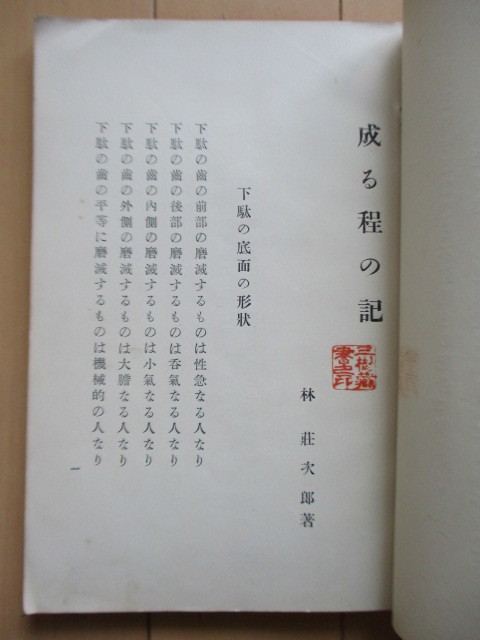 成る程の記
林莊次郎著
下駄の底面の形狀
下駄の齒の前部の磨滅するものは性急なる人なり
下駄の齒の後部の磨滅するものは呑氣なる人なり
下駄の齒の內側の磨滅するものは小氣なる人なり
下駄の齒の外側の磨滅するものは大膽なる人なり
下駄の齒の平等に磨滅するものは機械的の人なり
一